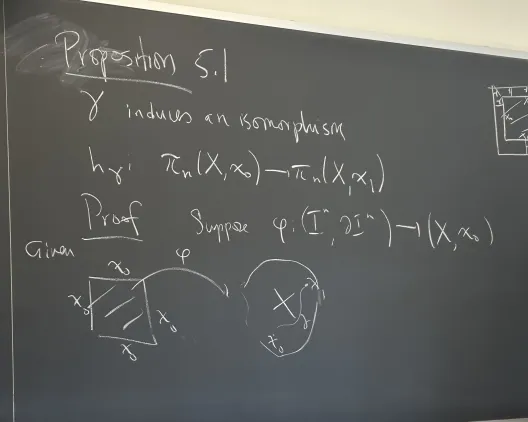 Proposition 5.1
γ induces an isomorphism
h_γ: π_n(X, x_0) → π_n(X, x_1)
Proof Suppose φ: (I^n, ∂I^n) → (X, x_0)
Given
x_0 φ
x_0 x_0 X x_1
γ
x_0 x_0